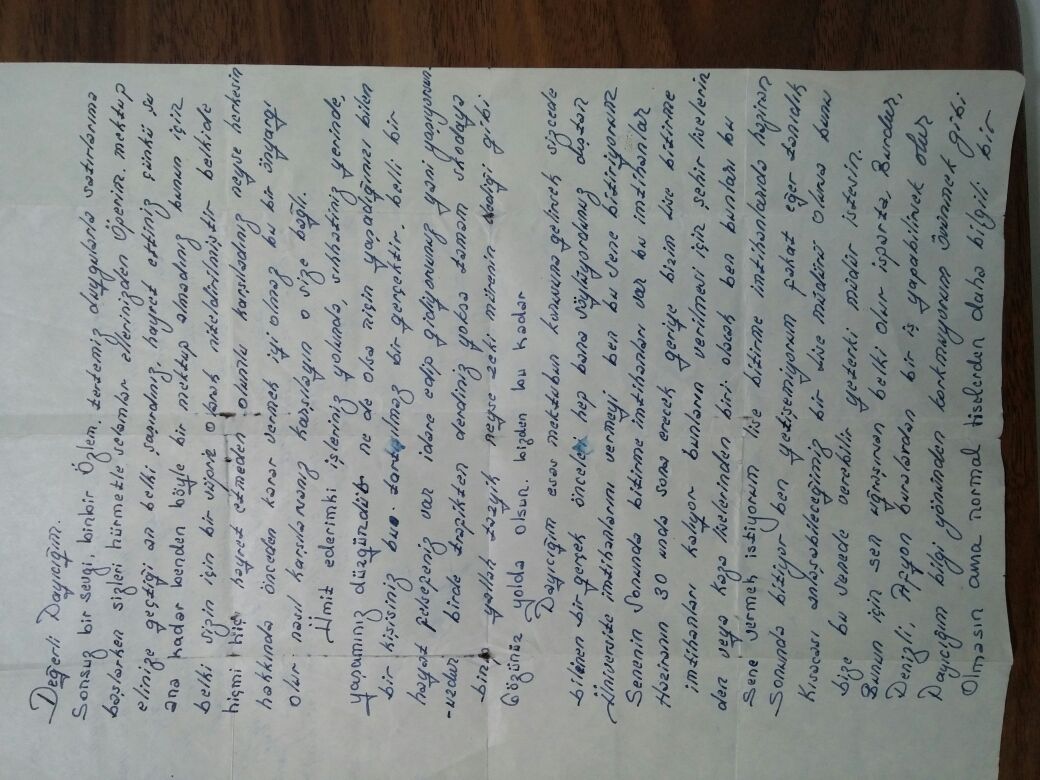 Değerli Dayıcığım.
Sonsuz bir sevgi, binbir özlem. tertemiz duygularla satırlarıma
başlarken sizleri hürmetle selamlar ellerinizden öperim. mektup
elinize geçtiği an belki şaşırdınız, hayret ettiniz çünkü şu
ana kadar benden böyle bir mektup almadınız bunun için
belki sizin için bir sürpriz olarak nitelendirilmiştir belkide
hiçmi hiç hayret etmeden olumlu karşıladınız neyse herkesin
hakkında önceden karar vermek iyi olmaz bu bir önyargı
olur nasıl karşılarsanız karşılayın o size bağlı.
Ümit ederimki işleriniz yolunda, sıhhatiniz yerinde,
yaşamınız düzgündür ne de olsa niçin yaşadığını bilen
bir kişisiniz bu bir gerçektir. belli bir
hayat felsefeniz var idare edip gidiyorsunuz yani yaşıyorsun
-uzdur birde trafikten derdiniz yoksa tamam skodaya
binip yallah tazyik neyse zeki mürenin dediği gibi
Gözünüz yolda olsun. bizden bu kadar
Dayıcığım esas mektubun konusuna gelince sizcede
bilinen bir gerçek önceleri hep bana söylüyordunuz dıştan
Üniversite imtihanlarını vermeyi ben bu sene bitiriyorum
Senenin Sonunda bitirme imtihanları var bu imtihanlar
Haziranın 30 unda sona erecek geriye bizim lise bitirme
imtihanları kalıyor bunların verilmesi için şehir liselerin
den veya kaza liselerinden biri olacak ben bunları bu
Sene vermek istiyorum lise bitirme imtihanlarıda haziran
Sonunda bitiyor ben yetişemiyorum fakat eğer tanıdık
Kısacası anlaşabileceğimiz bir lise müdürü olursa bunu
bize bu senede verebilir yeterki müdür istesin.
Bunun için sen uğraşırsan belki olur ısparta, Burdur,
Denizli, Afyon buralardan bir iş yapabilirsek olur
Dayıcığım bilgi yönünden korkmuyorum övünmek gibi
Olmasın ama normal liselerden daha bilgili bir